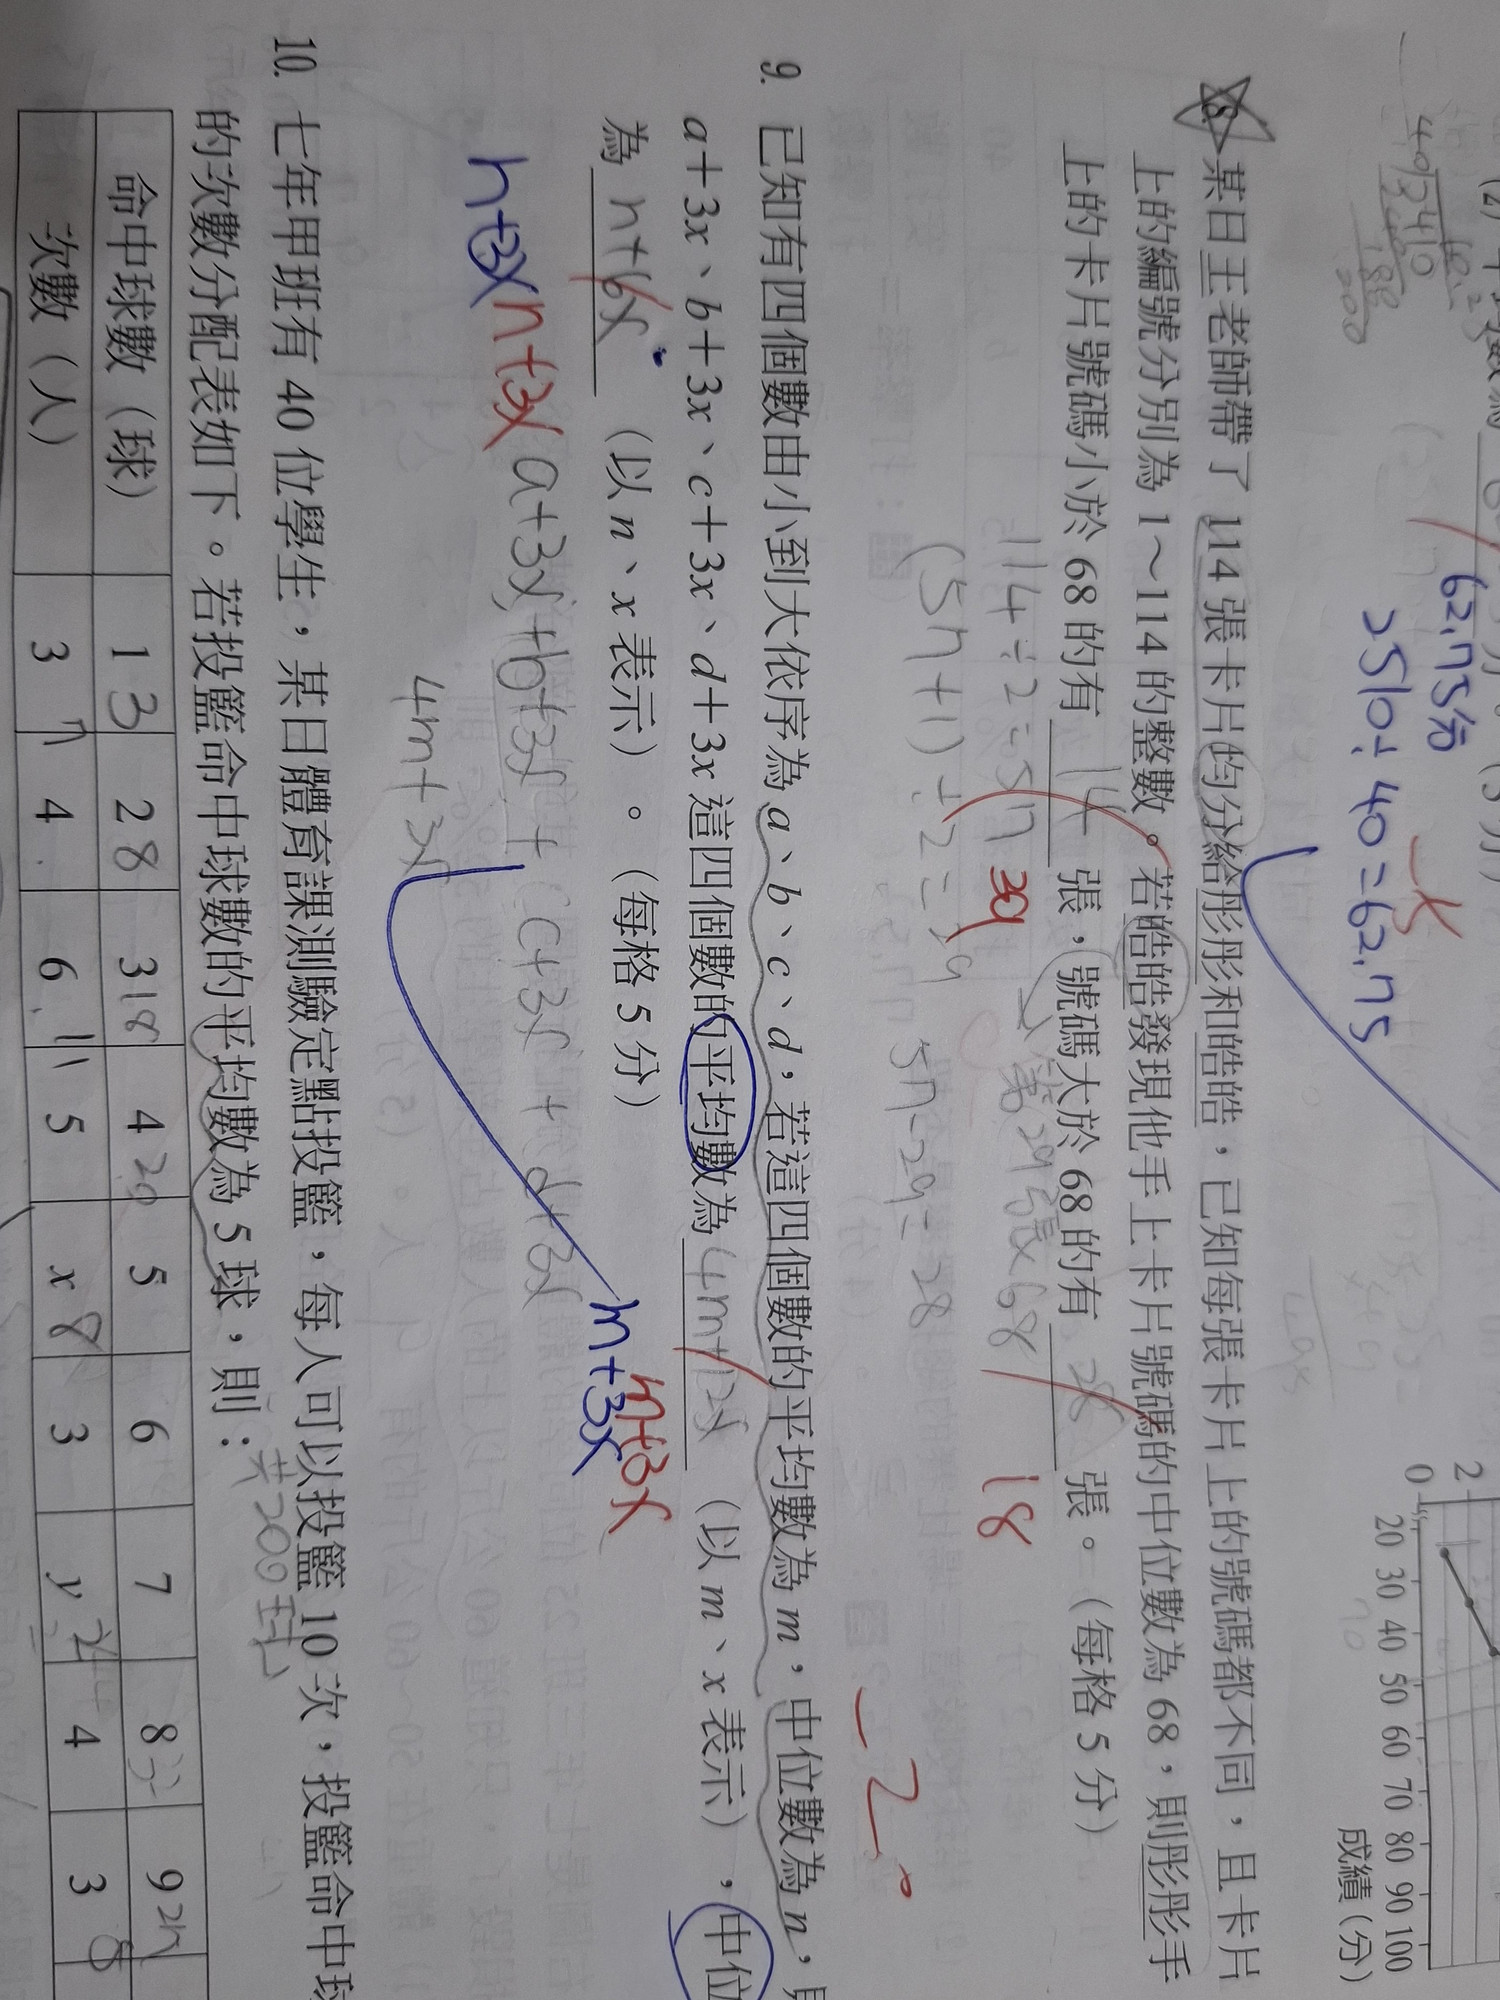 62.75分
2510÷40=62.75
2
0
20 30 40 50 60 70 80 90 100
成績（分）
8. 某日王老師帶了 114 張卡片均分給彤彤和皓皓，已知每張卡片上的號碼都不同，且卡片
上的編號分別為 1～114 的整數。若皓皓發現他手上卡片號碼的中位數為 68，則彤彤手
上的卡片號碼小於 68 的有 14 張，號碼大於 68 的有 28 張。（每格 5 分）
39
18
114÷2=57
→第29張×68
(57+1)÷2=29
57-29=28
-2
9. 已知有四個數由小到大依序為 a、b、c、d，若這四個數的平均數為 m，中位數為 n，
a＋3x、b＋3x、c＋3x、d＋3x 這四個數的平均數為 4m+12x （以 m、x 表示），中位
為 n+6x （以 n、x 表示）。（每格 5 分）
m+3x
m+3x
n+3x n+3x a+3x+b+3x+c+3x+d+3x
4m+3x
10. 七年甲班有 40 位學生，某日體育課測驗定點投籃，每人可以投籃 10 次，投籃命中球
的次數分配表如下。若投籃命中球數的平均數為 5 球，則：
共200球
命中球數（球） 1 3 2 8 3 18 4 20 5 6 7 8 32 9 27
次數（人） 3 7 4 6 11 5 x 8 3 y 4 3